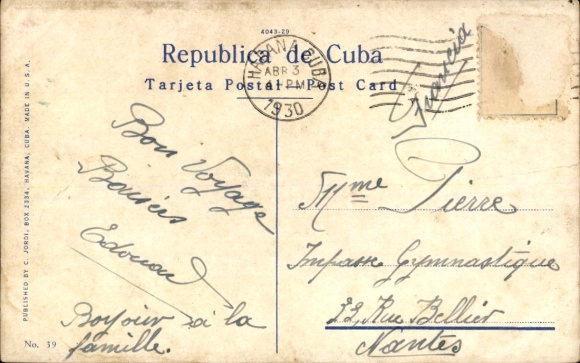 4043-29
Republica de Cuba
Tarjeta Postal — Post Card
HABANA, CUBA
ABR 3
PM
1930
Francia
Bon Voyage
Baisers
Edouard
Bonjour à la
famille.
Mme Pierre
Impasse Gymnastique
22, Rue Bellier
Nantes
PUBLISHED BY C. JORDI, BOX 2334, HAVANA, CUBA. MADE IN U.S.A.
No. 39